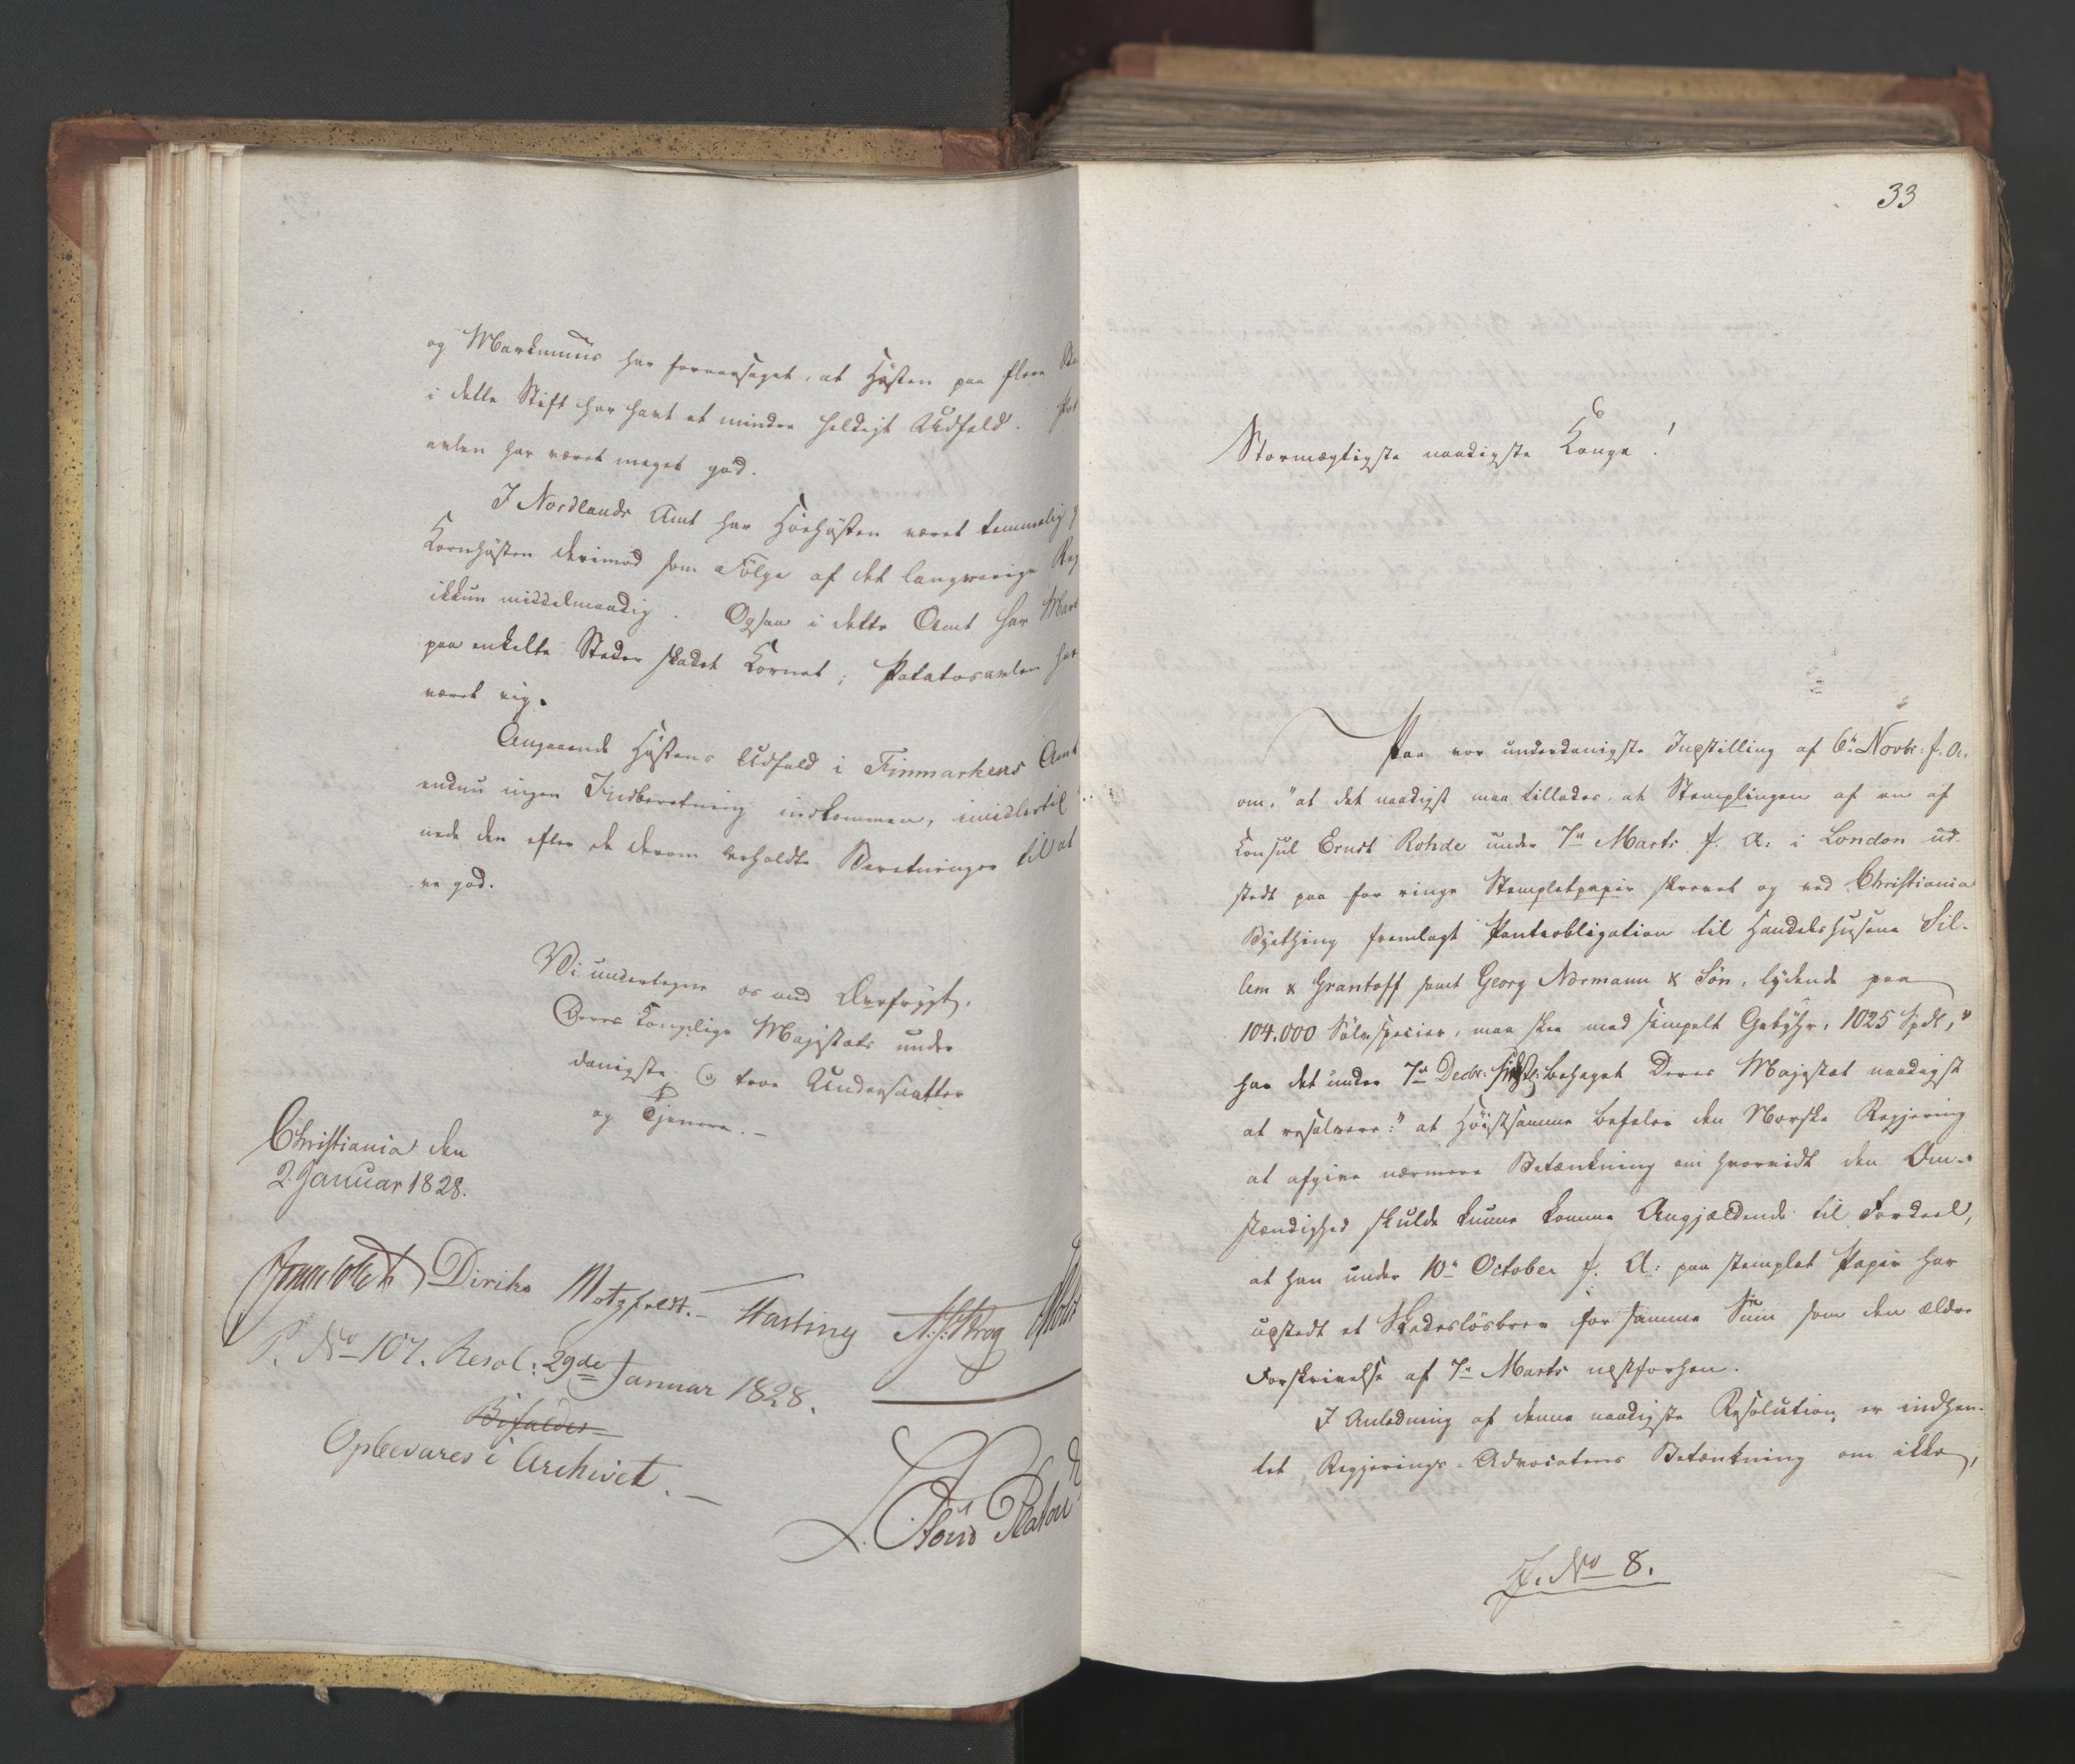 og Markmuus har foraarsaget, at Høsten paa flere Ste
i dette Stift har havt et mindre heldigt Udfald. Pot
avlen har været meget god.
I Nordlands Amt har Höehøsten været temmelig g
Kornhøsten derimod som Fölge af det langvarige Reg
ikkun middelmaadig. Ogsaa i dette Amt har Mark
paa enkelte Steder skadet Kornet; Potatosavlen har
været rig.
Angaaende Høstens Udfald i Finmarkens Amt
endnu ingen Indberetning indkommen, imidlertid
nede den efter de derom erholdte Beretninger til at
re god.
Vi undertegne os med Ærefrygt,
Deres Kongelige Majestæts under
danigste @ troe Undersaatter
og Tjenere. -
Christiania den
2 Januar 1828.
Diriks Motzfeldt. Hasting A. S. Krog
P. No 107. Resol: 29de Januar 1828.
Bifaldes
Opbevares i Archivet. -
33
Stormægtigste naadigste Konge!
Paa vor underdanigste Indstilling af 6te Novbr: f. A.
om, "at det naadigst maa tillades, at Stemplingen af en af
Konsul Ernst Rohde under 7de Marts f. A: i London ud
stedt paa for ringe Stempletpapir skrevet og ved Christiania
Byething fremlagt Panteobligation til Handelshusene Sil-
lem & Grantoff samt Georg Normann & Sön, lydende paa
104.000 Sölvspecier, maa skee med simpelt Gebyhr, 1025 Spdl,"
har det under 7de Decbr: sidstl: behaget Deres Majestæt naadigst
at resolvere: "at Høistsamme befaler den Norske Regjering
at afgive nærmere Betænkning om hvorvidt den Om-
stændighed skulde kunne komme Angjældende til Fordeel,
at han under 10de October f. A: paa stemplet Papir har
udstedt et Skadeslösbrev for samme Sum som den ældre
Forskrivelse af 7de Marts næstforhen.
I Anledning af denne naadigste Resolution er indhen-
tet Regjerings-Advocatens Betænkning om ikke,
J. No 8.